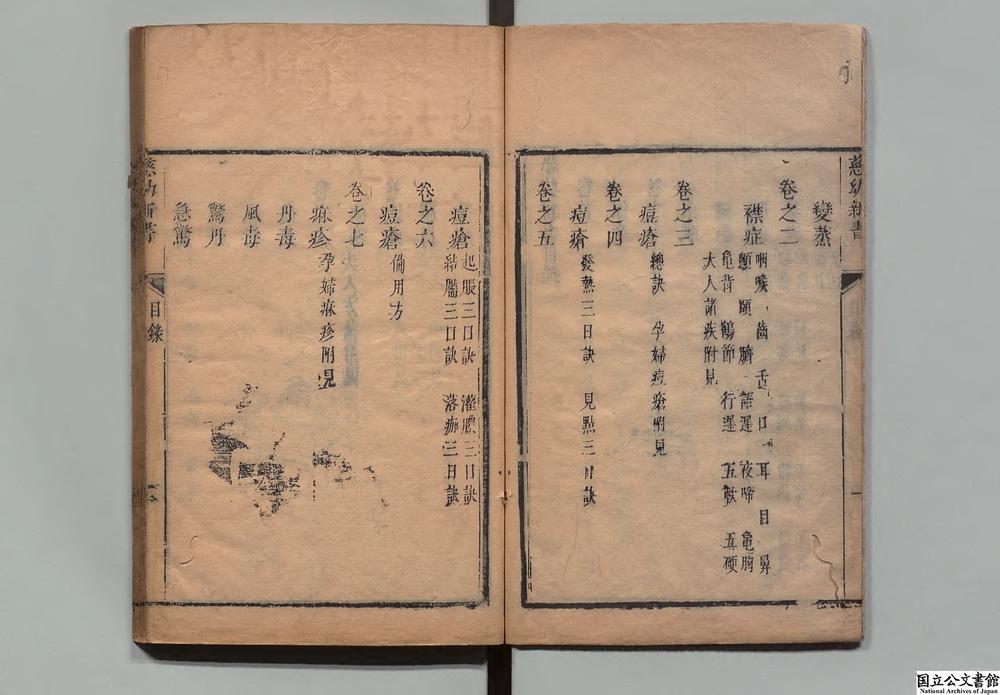 慈幼新書
變蒸
卷之二
襟症 咽喉 齒 舌 口 耳 目 鼻
顖 頤 臍 語遲 夜啼 龜胸
龜背 鶴節 行遲 五軟 五硬
大人諸疾附見
卷之三
痘瘡 總訣 孕婦痘瘡附見
卷之四
痘瘡 發熱三日訣 見點三日訣
卷之五
痘瘡 起脹三日訣 灌膿三日訣
結靨三日訣 落痂三日訣
卷之六
痘瘡 備用方
卷之七
痳疹 孕婦痳疹附見
丹毒
風毒
驚丹
急驚
慈幼新書
目錄
国立公文書館
National Archives of Japan